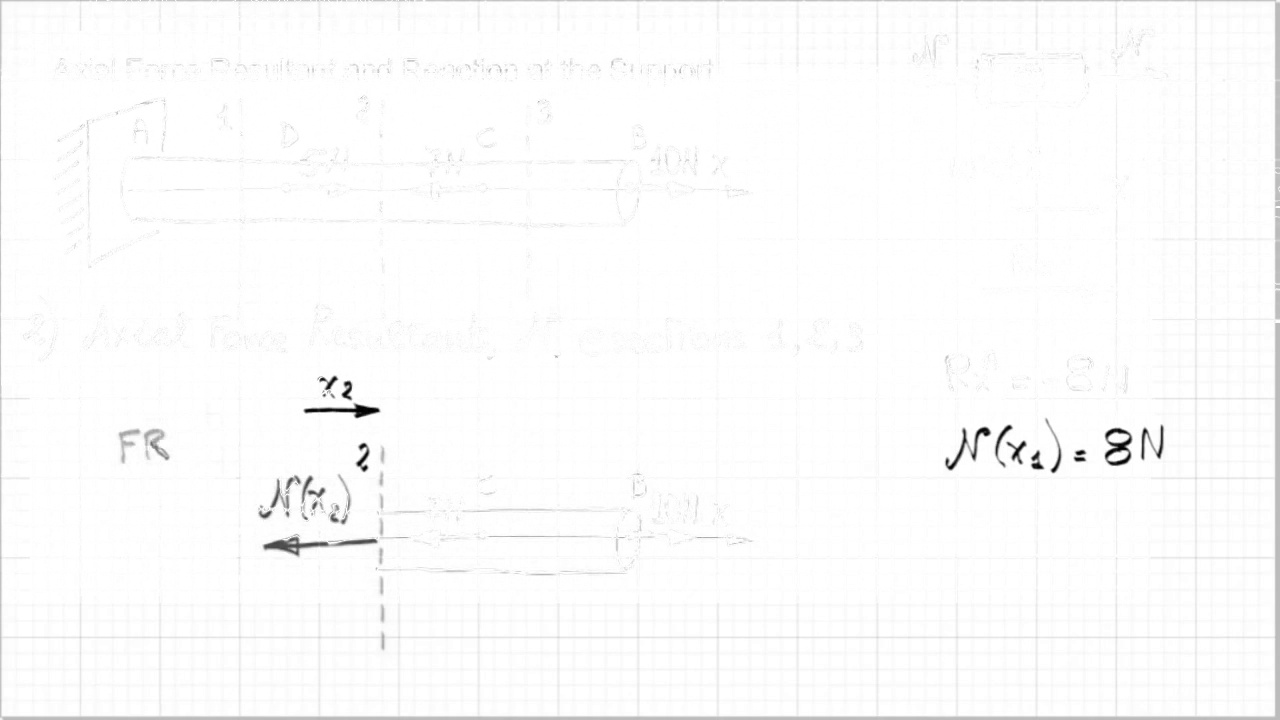 Axial Force Resultant and Reaction at the Support
N N
1 2 3
A D C B
5N 7N 10N x
2) Axial Force Resultant, N, @ sections 1, 2, 3
Rx^A = -8N
x₂
FR
N(x₁) = 8N
2
N(x₂)
C B
7N 10N x